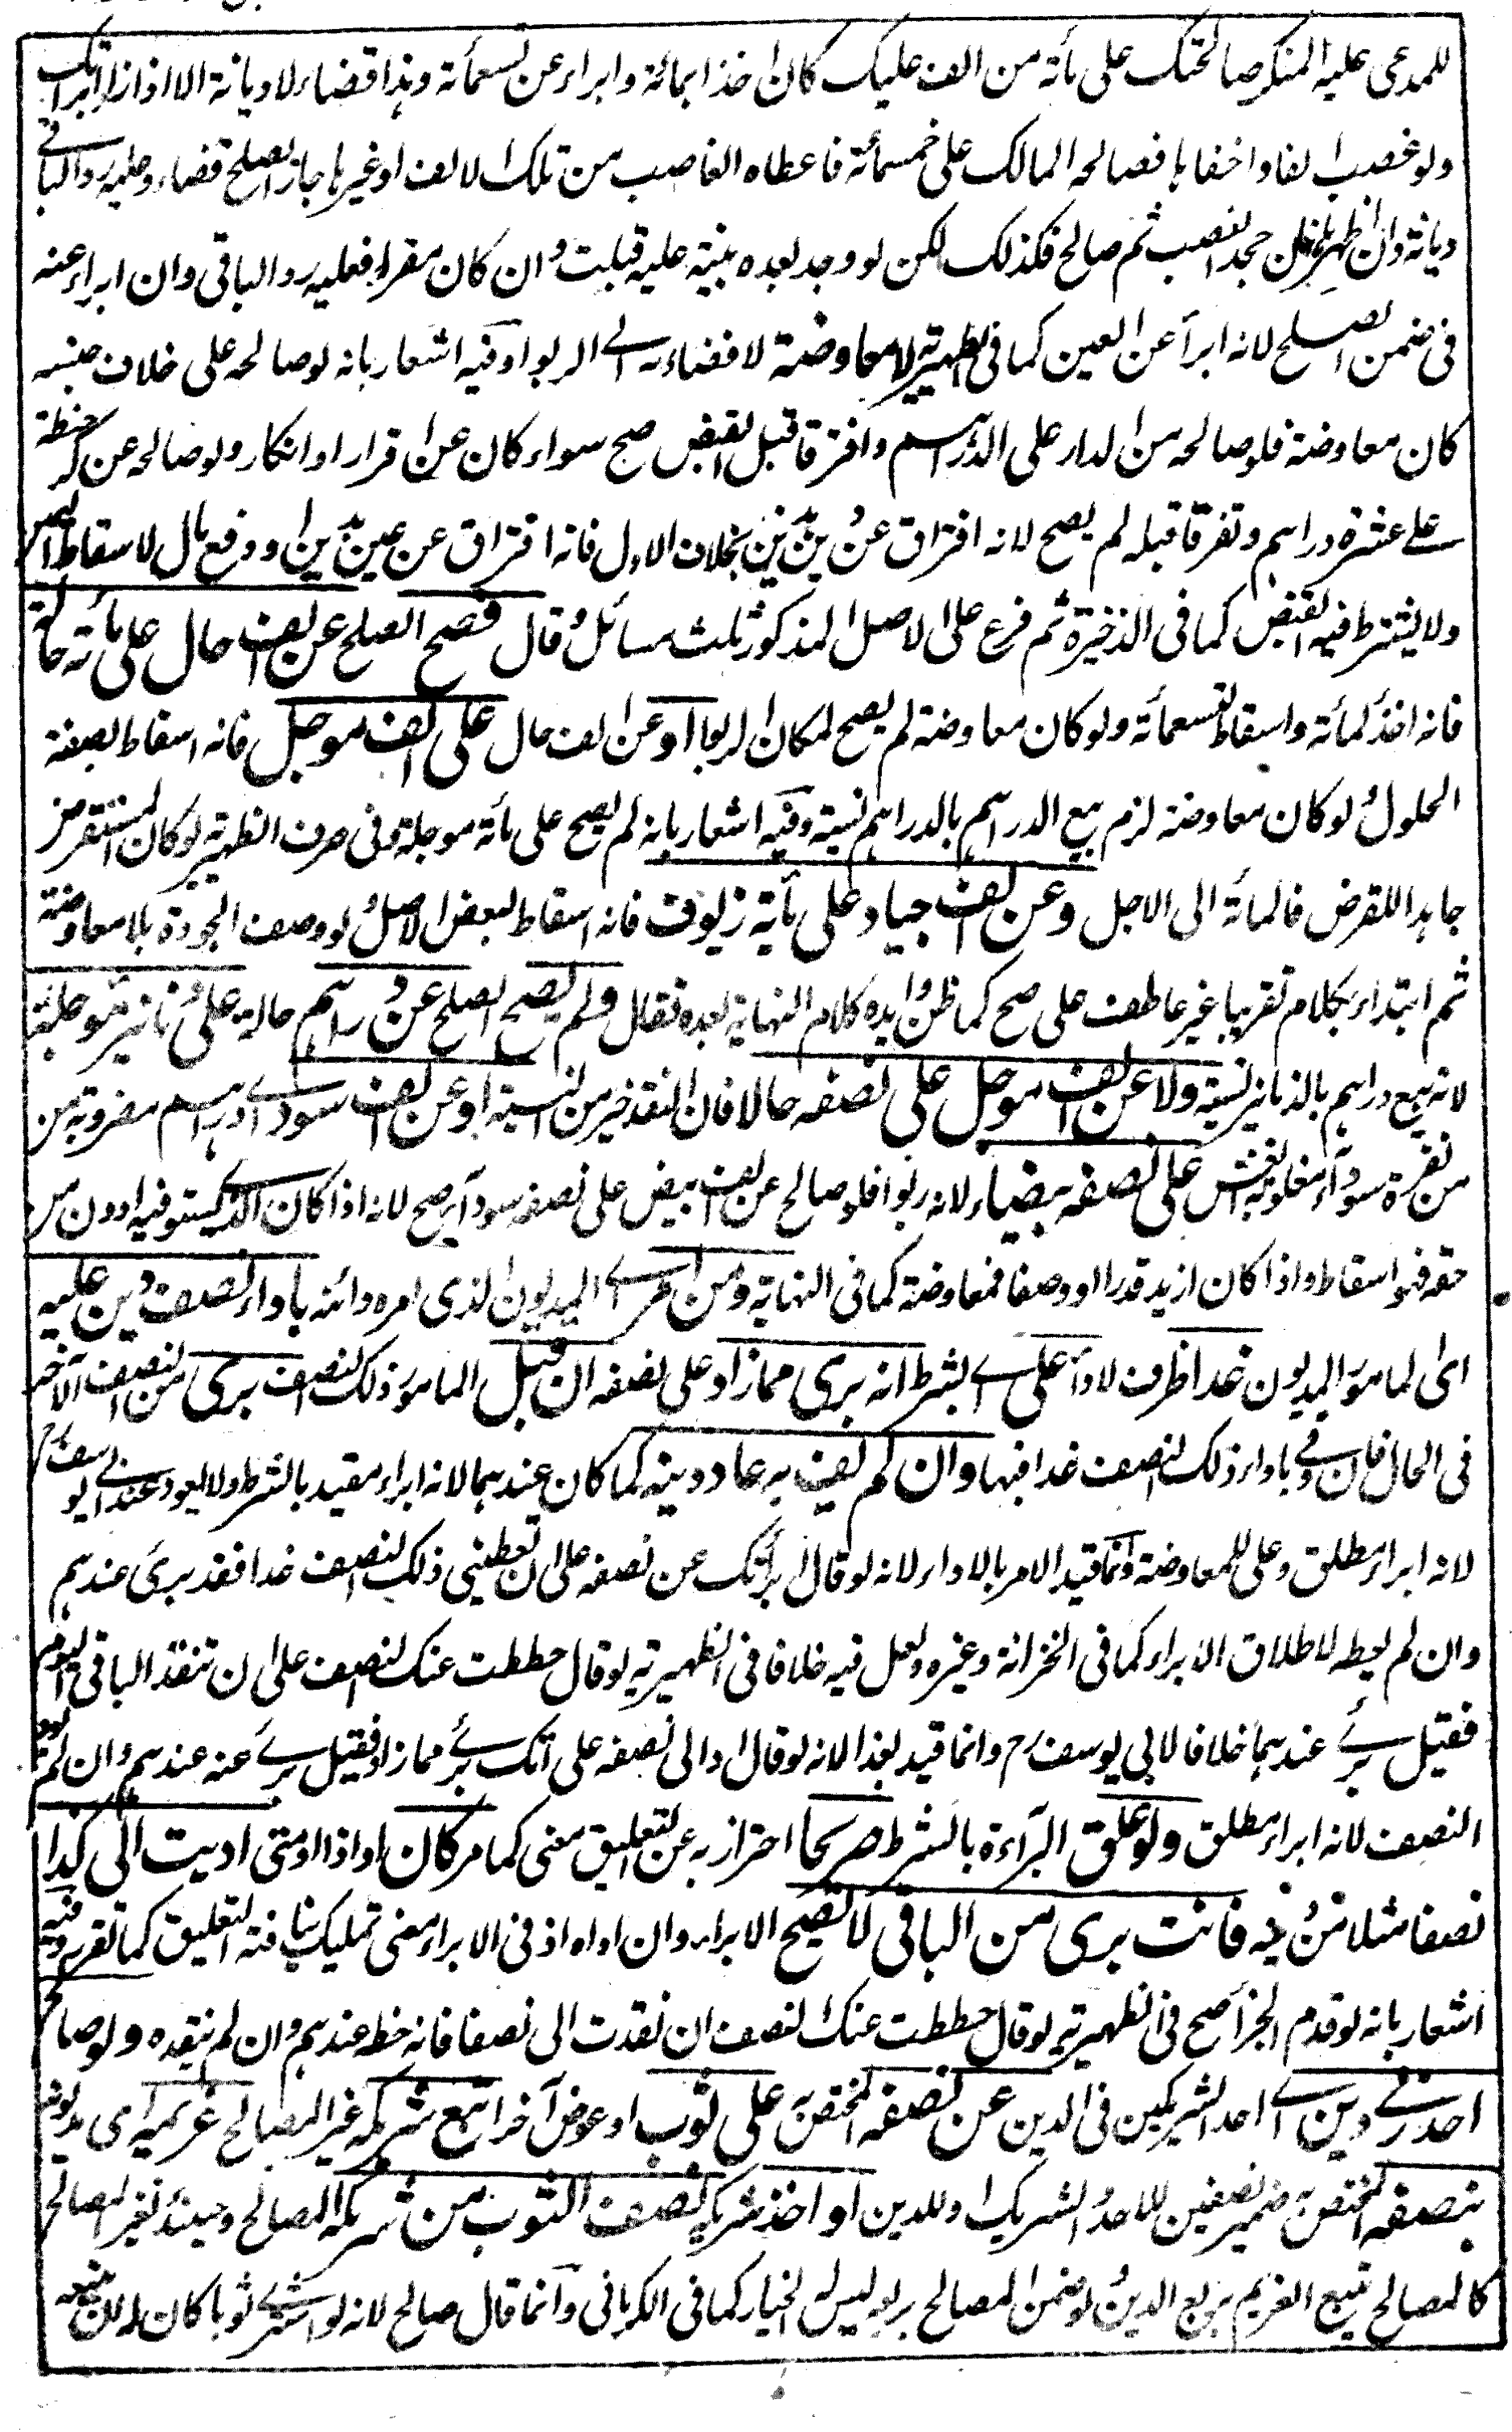 للمدعى عليه المنكر صالحتك على مأته من الف عليك كان اخذا بمائة وابراء عن تسعمأته وهذا قضاء لا ديانة الا اذا زاد ابرأتك
ولو غصب الفا واخفاها فصالحه المالك على خمسمائة فاعطاه الغاصب من تلك الالف او غيرها جاز الصلح قضاء وعليه رد الباقي
ديانة وان جحد الغصب ثم صالح فكذلك لكن لو وجد بعده بينة عليه قبلت وان كان مقرا فعليه رد الباقي وان ابراء عنه
في ضمن الصلح لانه ابرأ عن العين كما في الظهيرية لا معاوضة لافضاءه الى الربوا وفيه اشعار بانه لو صالحه على خلاف جنسه
كان معاوضة فلو صالحه من الدار على الدراهم وافترقا قبل القبض صح سواء كان عن اقرار او انكار ولو صالحه عن كر حنطة
على عشرة دراهم وتفرقا قبله لم يصح لانه افتراق عن دين بدين بخلاف الاول فانه افتراق عن عين بدين او دفع مال لاسقاط اليمين
ولا يشترط فيه القبض كما في الذخيرة ثم فرع على الاصل المذكور ثلث مسائل وقال فصح الصلح عن الف حال على مأته حالة
فانه اخذ لمأئة واسقاط لتسعمأئة ولو كان معاوضة لم يصح لمكان الربوا او عن الف حال على الف موجل فانه اسقاط لصفة
الحلول لو كان معاوضة لزم بيع الدراهم بالدراهم نسيئة وفيه اشعار بانه لم يصح على مأته موجلة وفي صرف الظهيرية لو كان المستقرض
جاحدا للقرض فالمأئة الى الاجل وعن الف جياد على مأية زيوف فانه اسقاط لبعض الاصل ووصف الجودة بلا معاوضة
ثم ابتداء بكلام تقريبا غير عاطف على صح كما ظن وايده كلام النهاية بعده فقال ولم يصح الصلح عن دراهم حالة على دنانير موجلة
لانه بيع دراهم بالدنانير نسيئة ولا عن الف موجل على نصفه حالا فان النقد خير من النسيئة او عن الف سود اى دراهم مضروبة من
من نقرة سوداء مغلوبة الغش على نصفه بيضاء لانه ربوا فلو صالح عن الف ابيض على نصفه سودا يصح لانه اذا كان الذي يستوفيه ادون من
حقه فهو اسقاط واذا كان ازيد قدرا او وصفا فمعاوضة كما في النهاية ومن امر اى المديون الذى امره دائنه باداء نصف دين عليه
اى المامور المديون غدا ظرف لاداء على اى بشرط انه برى مما زاد على نصفه ان قبل المامور ذلك النصف برى من النصف الاخر
في الحال فان وفي باداء ذلك النصف غدا فبها وان لم يف به عاد دينه كما كان عندهما لانه ابراء مقيد بالشرط ولا يعود عند ابي يوسف رح
لانه ابراء مطلق وعلى للمعاوضة وانما قيد الامر بالاداء لانه لو قال ابرأتك عن نصفه على ان تعطيني ذلك النصف غدا فقد برئ عندهم
وان لم يعطه لاطلاق الابراء كما في الخزانة وغيره ولعل فيه خلافا في الظهيرية لو قال حططت عنك النصف على ان تنقد الباقى اليوم
فقبل برئ عندهما خلافا لابي يوسف رح وانما قيد بغدا لانه لو قال اد الى نصفه على انك برئ مما زاد فقبل برئ عنه عندهم وان لم يؤد
النصف لانه ابراء مطلق ولو علق البرآءة بالشرط صريحا احتراز به عن التعليق معنى كما مر كان او اذا او متى اديت الى كذا
نصفا مثلا من فانت برى من الباقى لا تصح الابراء وان اداه اذ في الابراء معنى تمليك ينافيه التعليق كما تقرر وفيه
اشعار بانه لو قدم الجزأ صح في الظهيرية لو قال حططت عنك النصف ان نقدت الى نصفا فانه حط عندهم وان لم ينقده ولو صالح
احد ربى دين اى احد الشريكين في الدين عن نصفه المختص به على ثوب او عوض آخر اتبع شريكه غير المصالح غريمه اى مديونه
بنصفه المختص به ضمير نصفين للاحد الشريك او للدين او اخذ شريكه نصف الثوب من شريكه المصالح وحينئذ لغير المصالح
كالمصالح تبيع الغريم بربع الدين لو ضمن المصالح ربعه ليس له الخيار كما في الكرماني وانما قال صالح لانه لو اشترى ثوبا كان له ان يضمنه